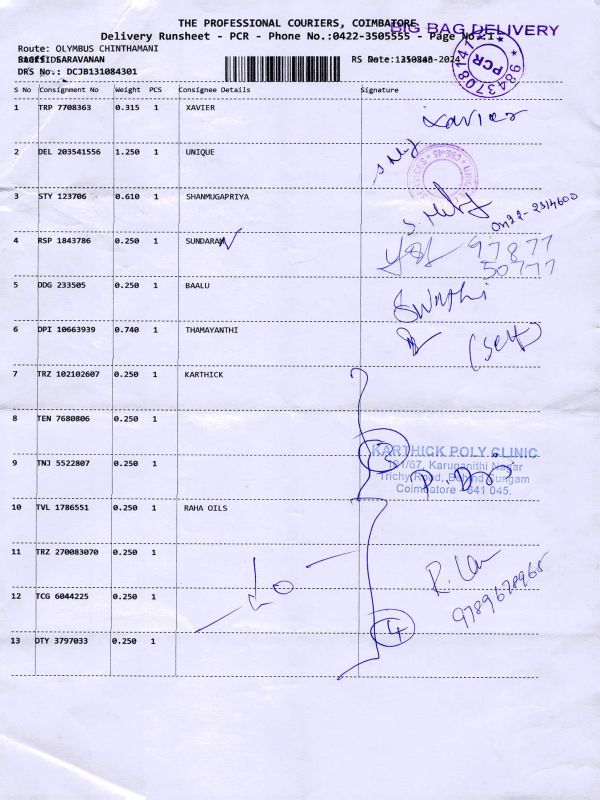 THE PROFESSIONAL COURIERS, COIMBATORE
BIG BAG DELIVERY
Delivery Runsheet - PCR - Phone No.:0422-3505555 - Page No.:1
Route: OLYMPUS CHINTHAMANI
SARAVANAN
RS Date:
DRS No.: DCJB131084301
PCR
9843708141
S No Consignment No Weight PCS Consignee Details Signature
1 TRP 7708363 0.315 1 XAVIER Xavier
2 DEL 203541556 1.250 1 UNIQUE
3 STY 123706 0.610 1 SHANMUGAPRIYA
0422-2314600
4 RSP 1843786 0.250 1 SUNDARAM 97877
50777
5 DDG 233505 0.250 1 BAALU Swathi
6 DPI 10663939 0.740 1 THAMAYANTHI (Self)
7 TRZ 102102607 0.250 1 KARTHICK
8 TEN 7680806 0.250 1
3
KARTHICK POLY CLINIC
181/67, Karunanithi Nagar
9 TNJ 5522807 0.250 1
Trichy Road, Behind Sungam
Coimbatore - 641 045.
10 TVL 1786551 0.250 1 RAHA OILS
11 TRZ 270083070 0.250 1
12 TCG 6044225 0.250 1
9789678965
4
13 OTY 3797033 0.250 1